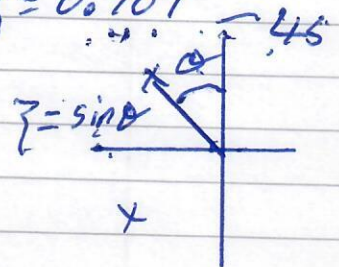 = 0.707
45
θ
ζ = sinθ
x